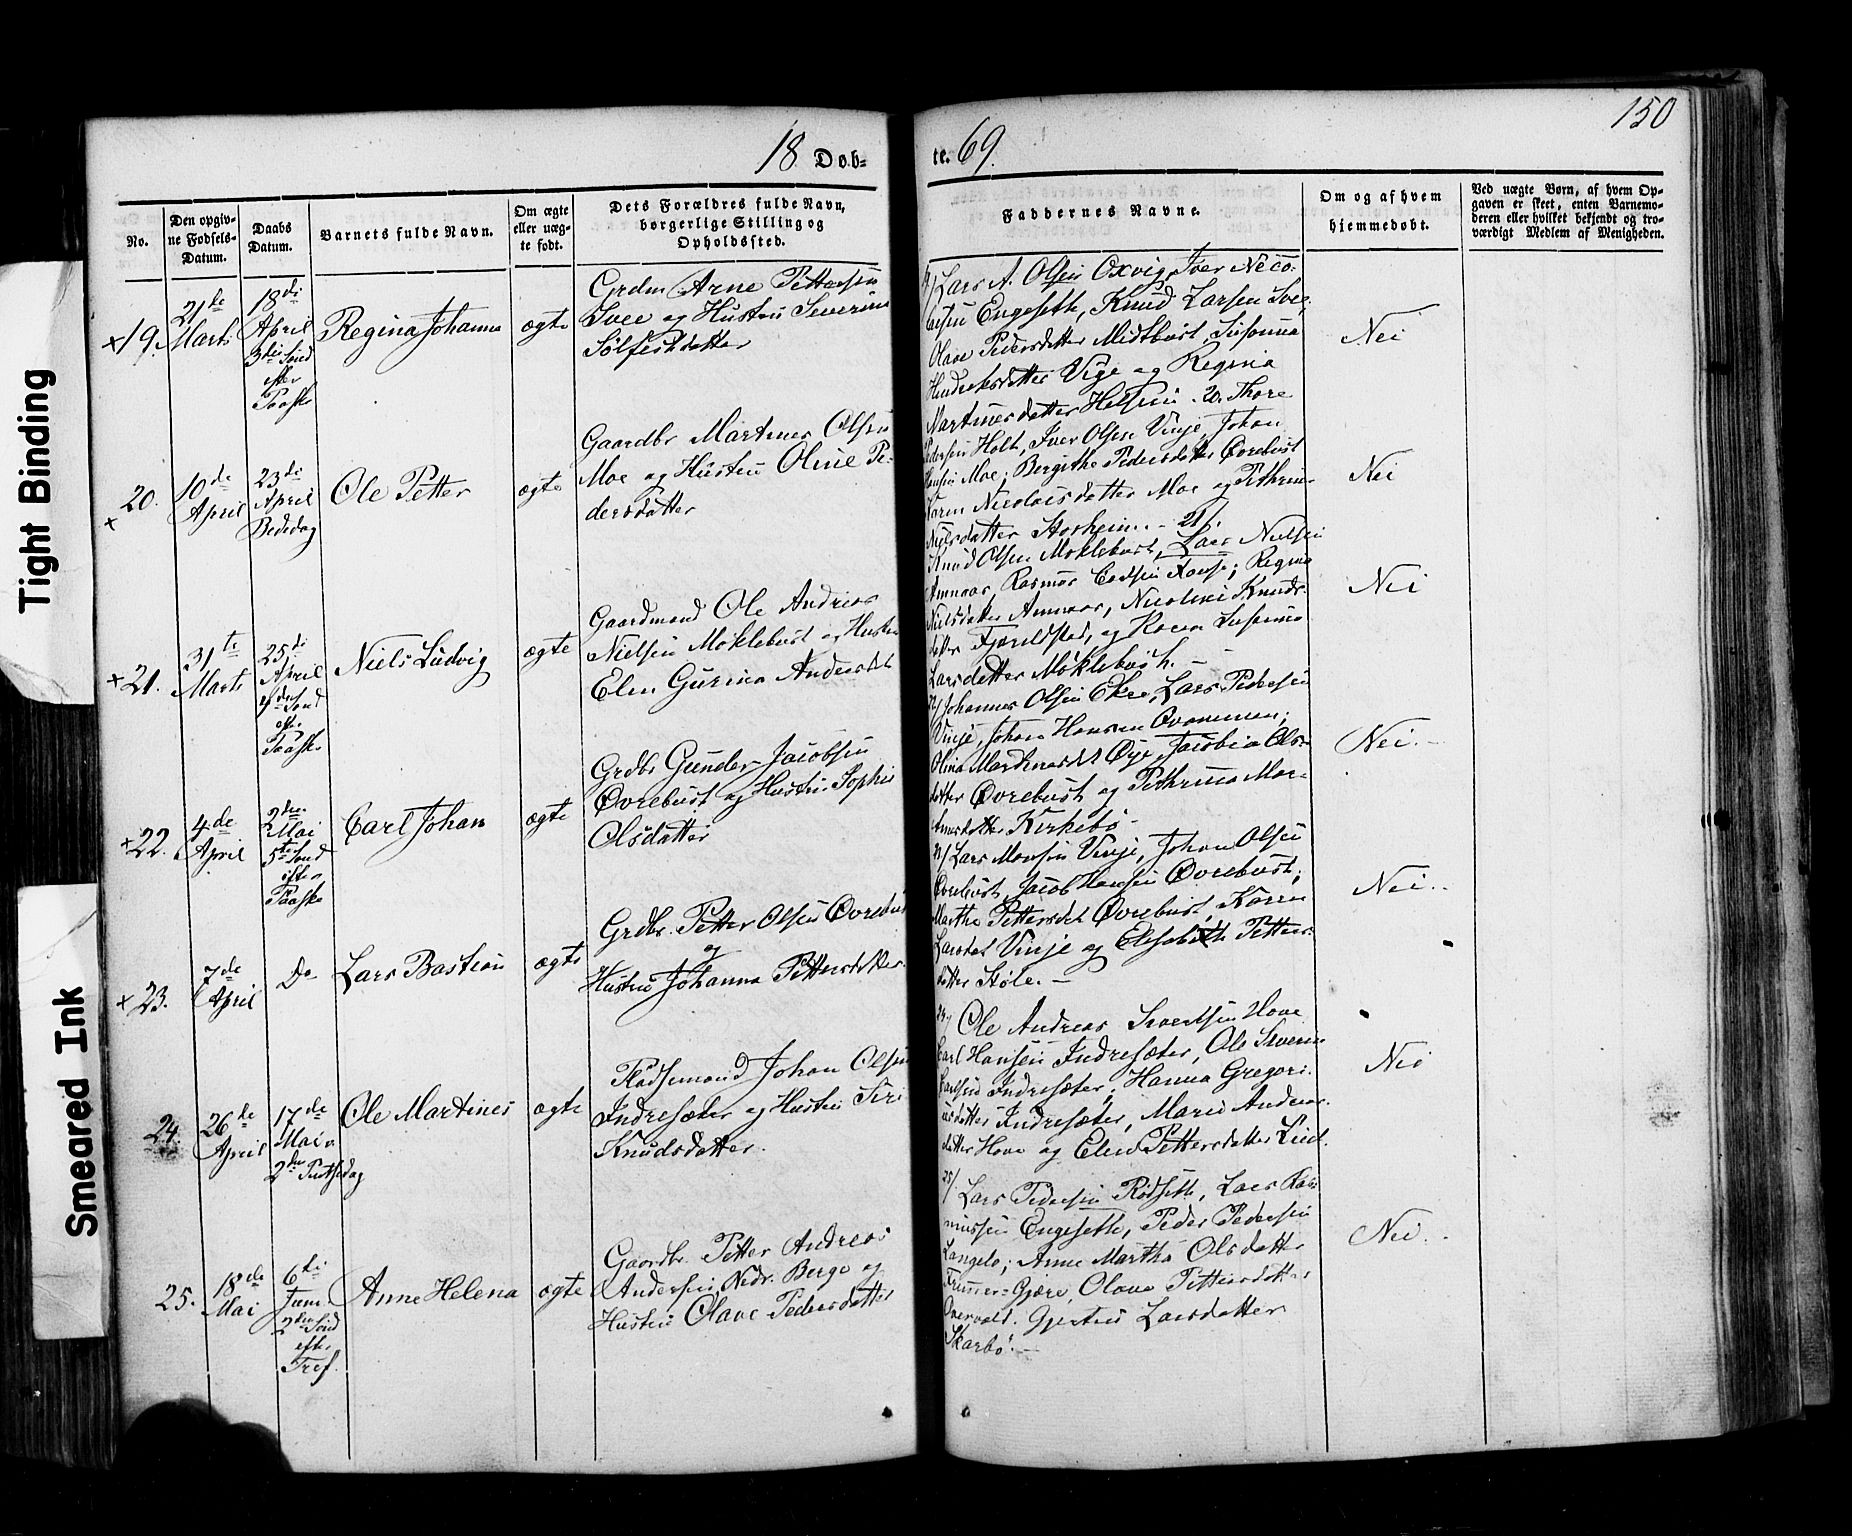 Tight Binding
Smeared Ink
150
18 Døb-
te. 69.
No.
Den opgiv-
ne Fødsels-
Datum.
Daabs
Datum.
Barnets fulde Navn.
Om ægte
eller uæg-
te født.
Dets Forældres fulde Navn,
borgerlige Stilling og
Opholdssted.
Faddernes Navne.
Om og af hvem
hjemmedøbt.
Ved uægte Børn, af hvem Op-
gaven er skeet, enten Barnemo-
deren eller hvilket bekjendt og tro-
værdigt Medlem af Menigheden.
×19.
21de
Marts
18de
April
3die Sønd
efter
Paaske
Regina Johanna
ægte
Grdm Arne Pettersen
Svee og Hustru Severine
Sølfestdatter
19/ Lars A. Olsen Oxvig, Iver Nico-
laisen Engeseth, Knud Larsen Svee,
Olave Pedersdatter Midtbust, Susanna
Hendriksdatter Vige og Regina
Martinusdatter Helsem.
Nei
×20.
10de
April
23de
April
Bededag
Ole Petter
ægte
Gaardbr Martinus Olsen
Moe og Hustru Oline Pe-
dersdatter
20. Thore
Pedersen Holt, Iver Olsen Vinje, Johan
Hansen Moe; Bergithe Pedersdatter Øvrebust
Karen Nicolaisdatter Moe og Pethrine
Nielsdatter Storheim. -
Nei
×21.
31te
Marts
25de
April
4de Sønd
eft.
Paaske
Niels Ludvig
ægte
Gaardmand Ole Andreas
Nielsen Møklebust og Hustru
Elen Gurina Andersdt
21/
Knud Olsen Møklebust, Lars Nielsen
Amnaas, Rasmus
Regina
Nielsdatter Amnaas, Nicoline Knuds-
datter Fjørtoftstad, og Karen Susanna
Larsdatter Møklebust. -
Nei
×22.
4de
April
2den
Mai
5te Sønd
efter
Paaske
Carl Johan
ægte
Grdbr Gunder Jacobsen
Øvrebust og Hustru Sophie
Olsdatter
22/ Johannes Olsen Ekre, Lars Pedersen
Vinje, Johan Hansen Qvammen;
Olina Martinusdt Øye, Jacobia Ols-
datter Øvrebust og Pethrina Mar-
tinusdatter Kirkebø -
Nei. -
×23.
7de
April
Do
Lars Bastian
ægte
Grdbr. Petter Olsen Øvrebust
og
Hustru Johanna Pettersdatter.
23/ Lars Monsen Vinje, Johan Olsen
Øvrebust, Jacob Hansen Øvrebust;
Marthe Pettersdt Øvrebust, Karen
Larsdt Vinje og Elisabeth Petters-
datter Støle. -
Nei. -
24.
26de
April
17de
Mai
2den Pintsedag
Ole Martines
ægte
Pladsemand Johan Olsen
Indresæter og Hustru Siri
Knudsdatter.
24/ Ole Andreas Sivertsen Hove
Carl Hansen Indresæter, Ole Severin
Carlsen Indresæter; Hanna Gregori-
usdatter Indresæter, Marie Anders-
datter Hove og Elen Pettersdatter Lied.
Nei
25.
18de
Mai
6te
Juni
2den Sønd
efter
Tref.
Anne Helena
ægte
Gaardbr. Petter Andreas
Andersen Nedr. Berge og
Hustru Olave Pedersdatter
25/ Lars Pedersen Rødseth, Lars Ras-
mussen Engeseth, Peder Pedersen
Langelo; Anne Martha Olsdatter
Gjære, Olave Pettersdatter
Overvold. Gjertru Larsdatter
Skarbø. -
Nei. -